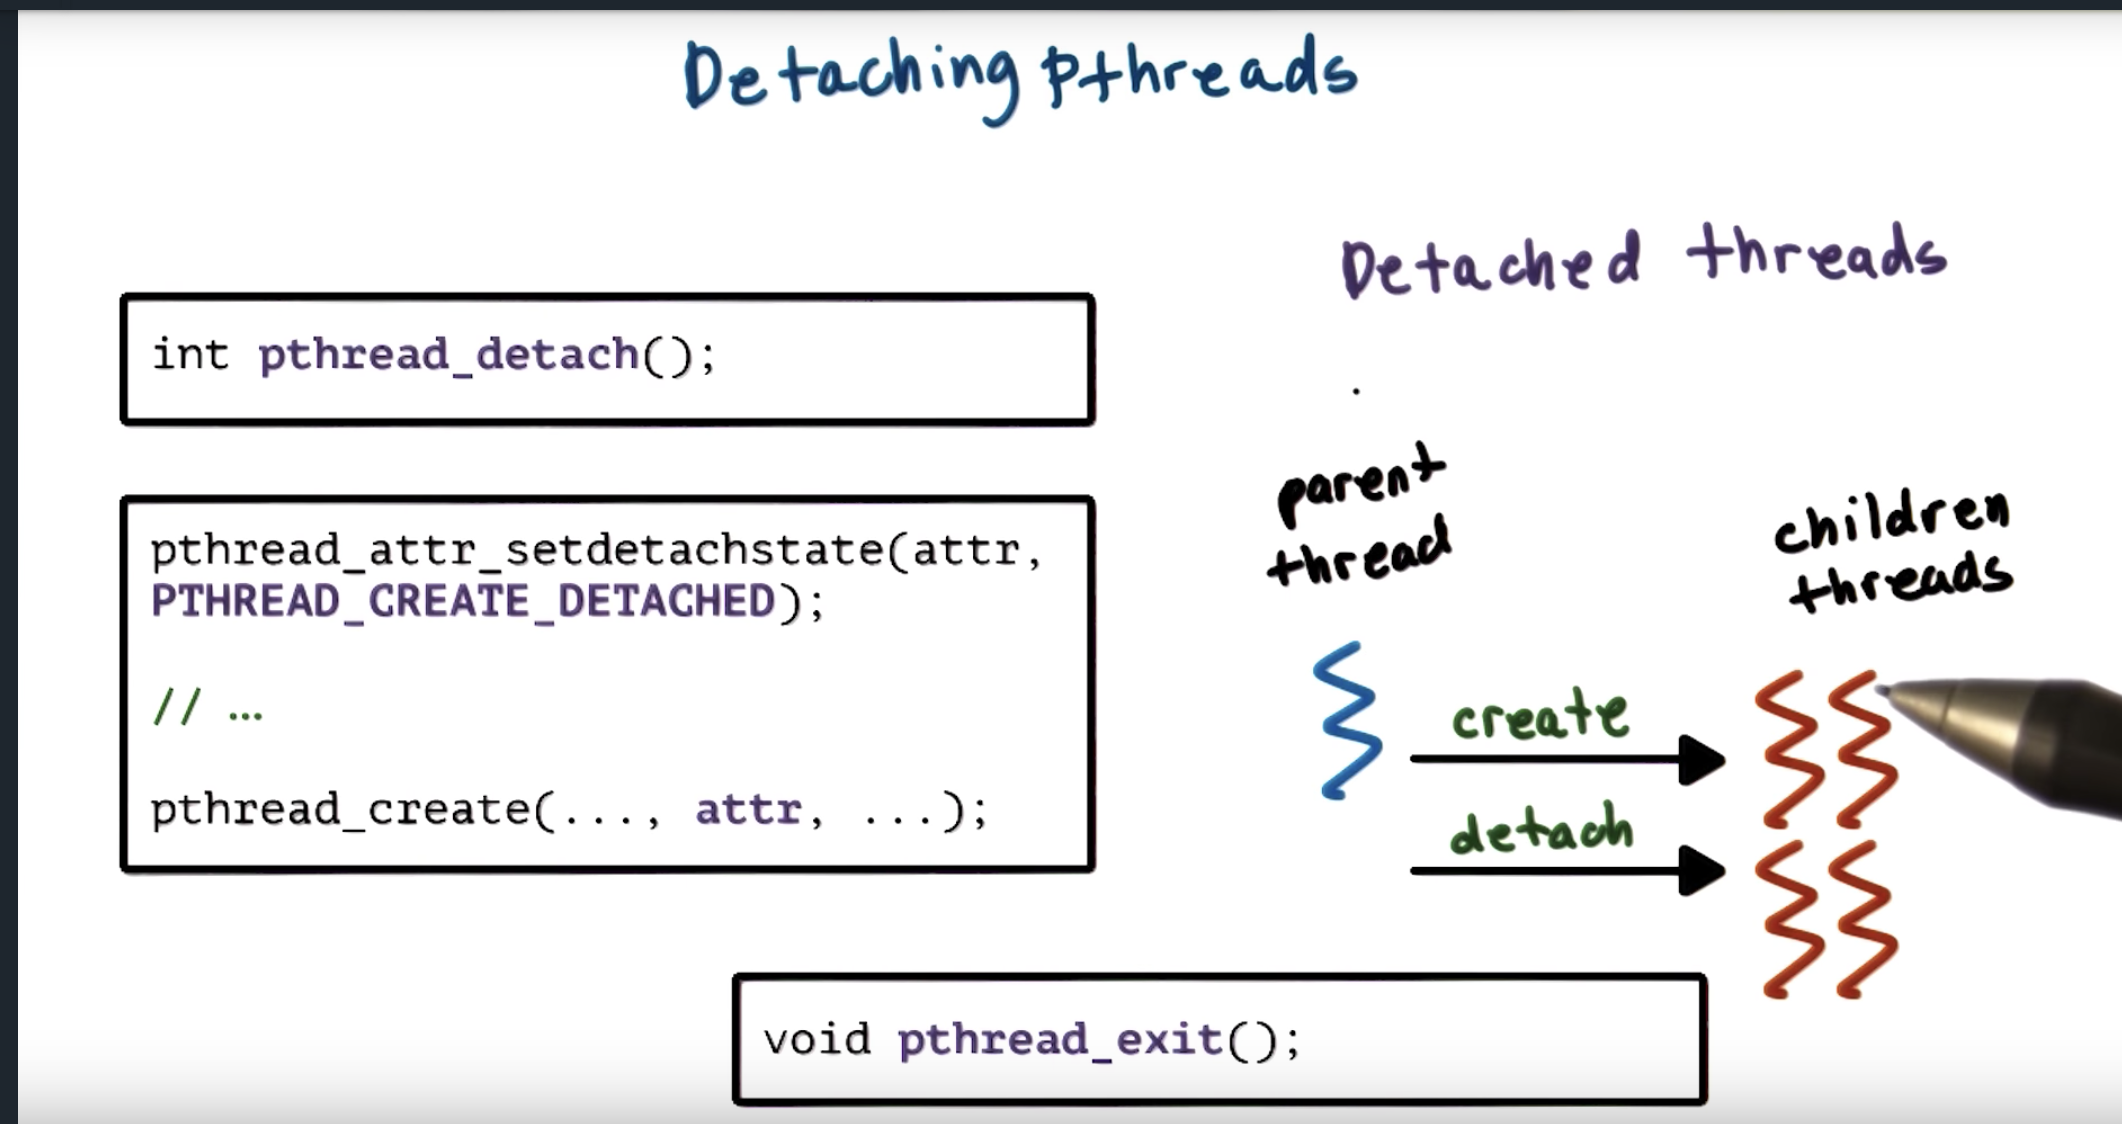 Detaching Pthreads
Detached threads
int pthread_detach();
pthread_attr_setdetachstate(attr,
PTHREAD_CREATE_DETACHED);
// ...
pthread_create(..., attr, ...);
parent
thread
children
threads
create
detach
void pthread_exit();